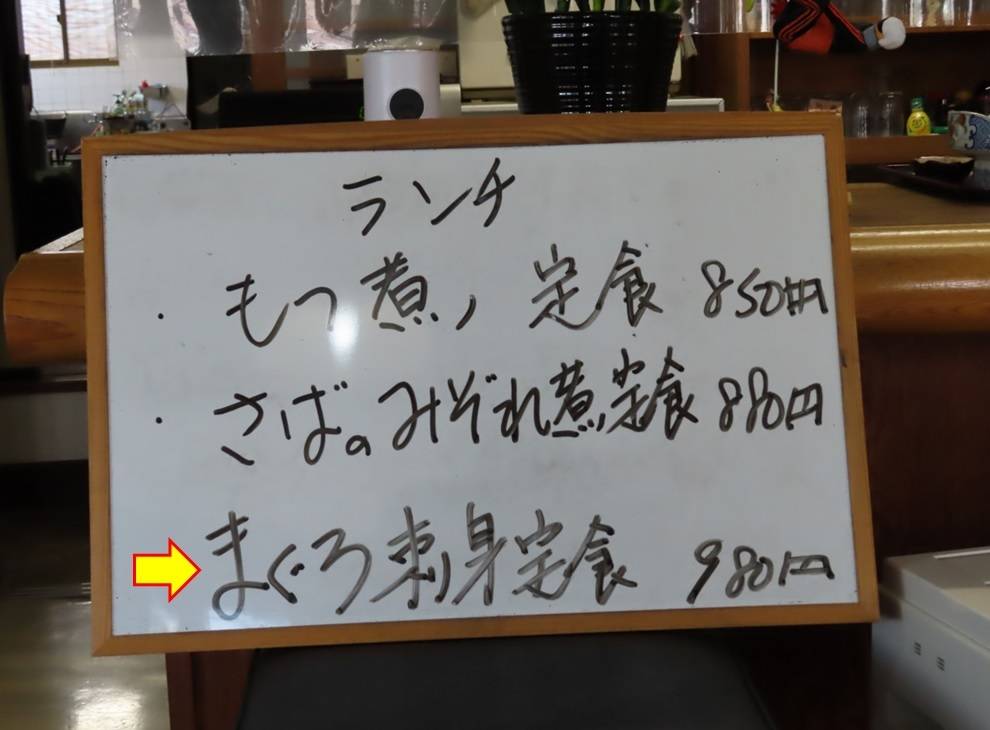 ランチ
・もつ煮、定食 850円
・さばのみぞれ煮定食 880円
まぐろ刺身定食 980円